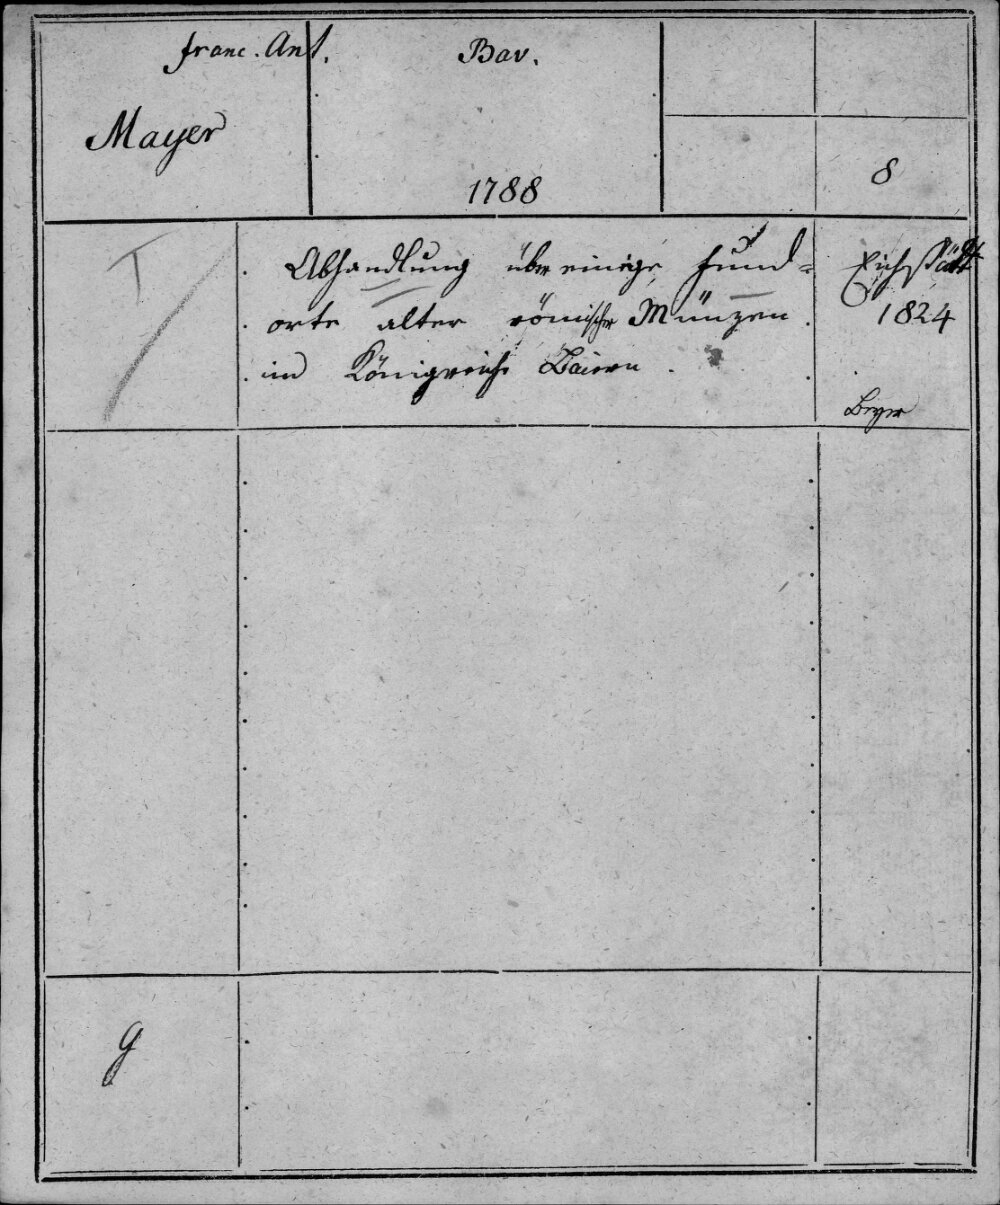 Franc. Ant.
Mayer
Bav.
1788
8
I
Abhandlung über einige Fund-
orte alter römischer Münzen
im Königreiche Baiern.
Eichstätt
1824
Beyer
g